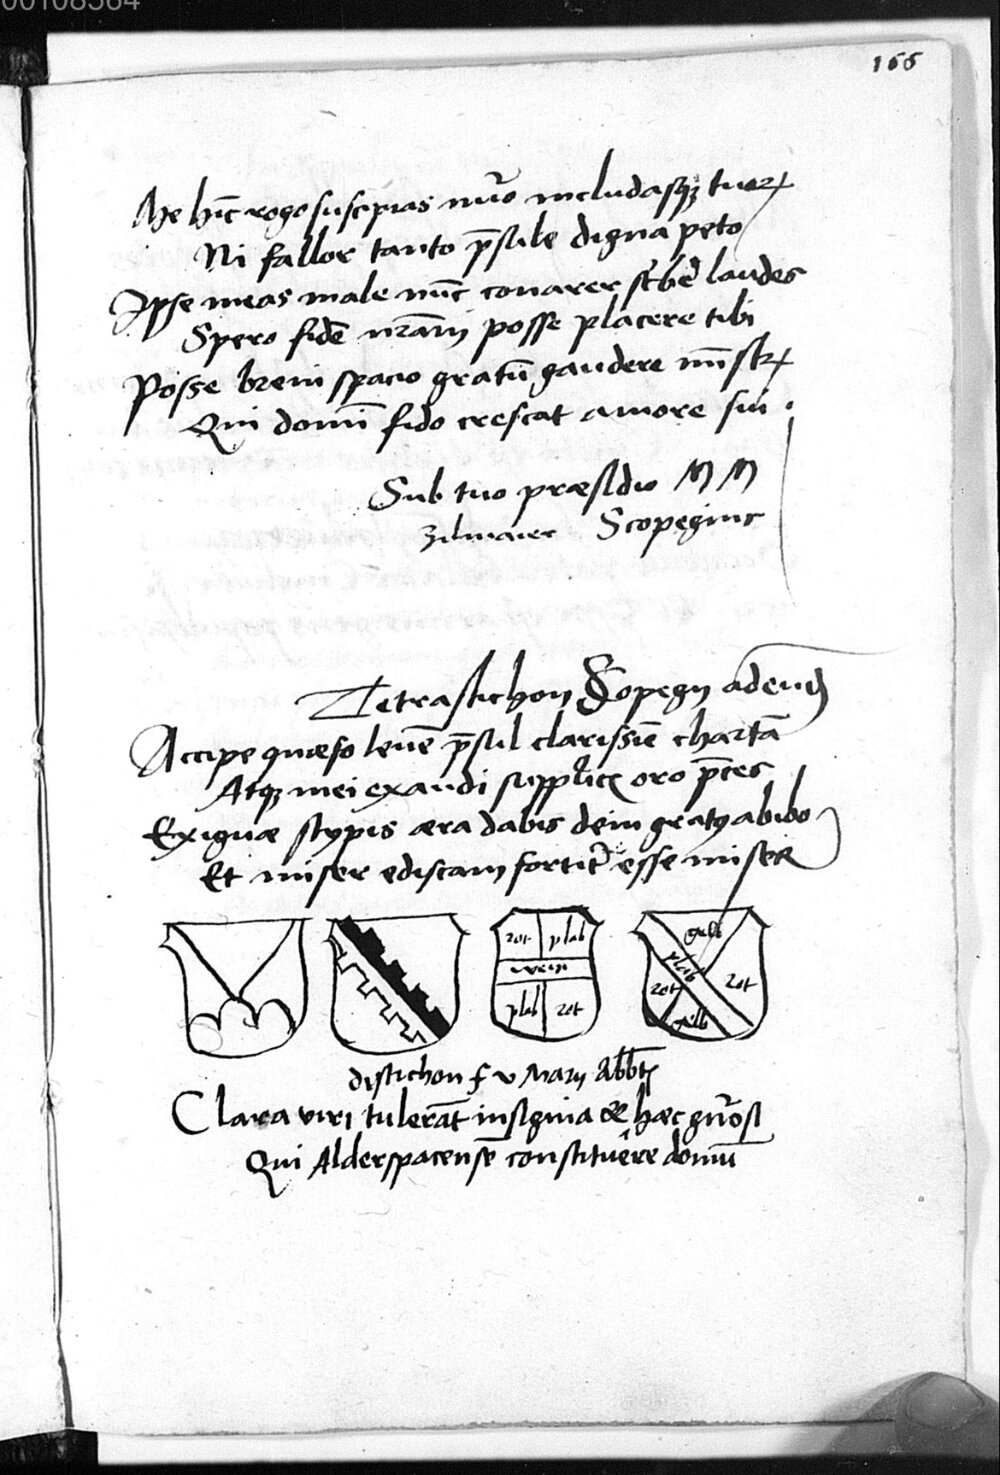 00108564
166
Me hīc rogo suscipias nūro includasq; tuorꝝ
Ni fallor tanto p̄sule digna peto
Ipse meas male nūc conarer scribē laudes
Spero fidē nrām posse placere tibi
Posse breui spacio gratū gaudere mīstrꝝ
Qui domī fido crescat amore sui .
Sub tuo præsidio M M
Zilmaier Scopegius
Tetrastichon Scopegij ad eund
Accipe quæso leuē p̄sul clarissīe chartā
Atq; mei exaudi supplicis oro p̄ces
Exiguæ stypis æra dabis dein gratꝰ abibo
Et miser ediscam fortit̄ esse miser
rot plab
weis
plab rot
gelb
plab
rot rot
gelb
distichon f v Marij Abbtis
Clara viri tulerāt insignia & hæc gn̄osi
Qui Alderspacensē constituêre domū